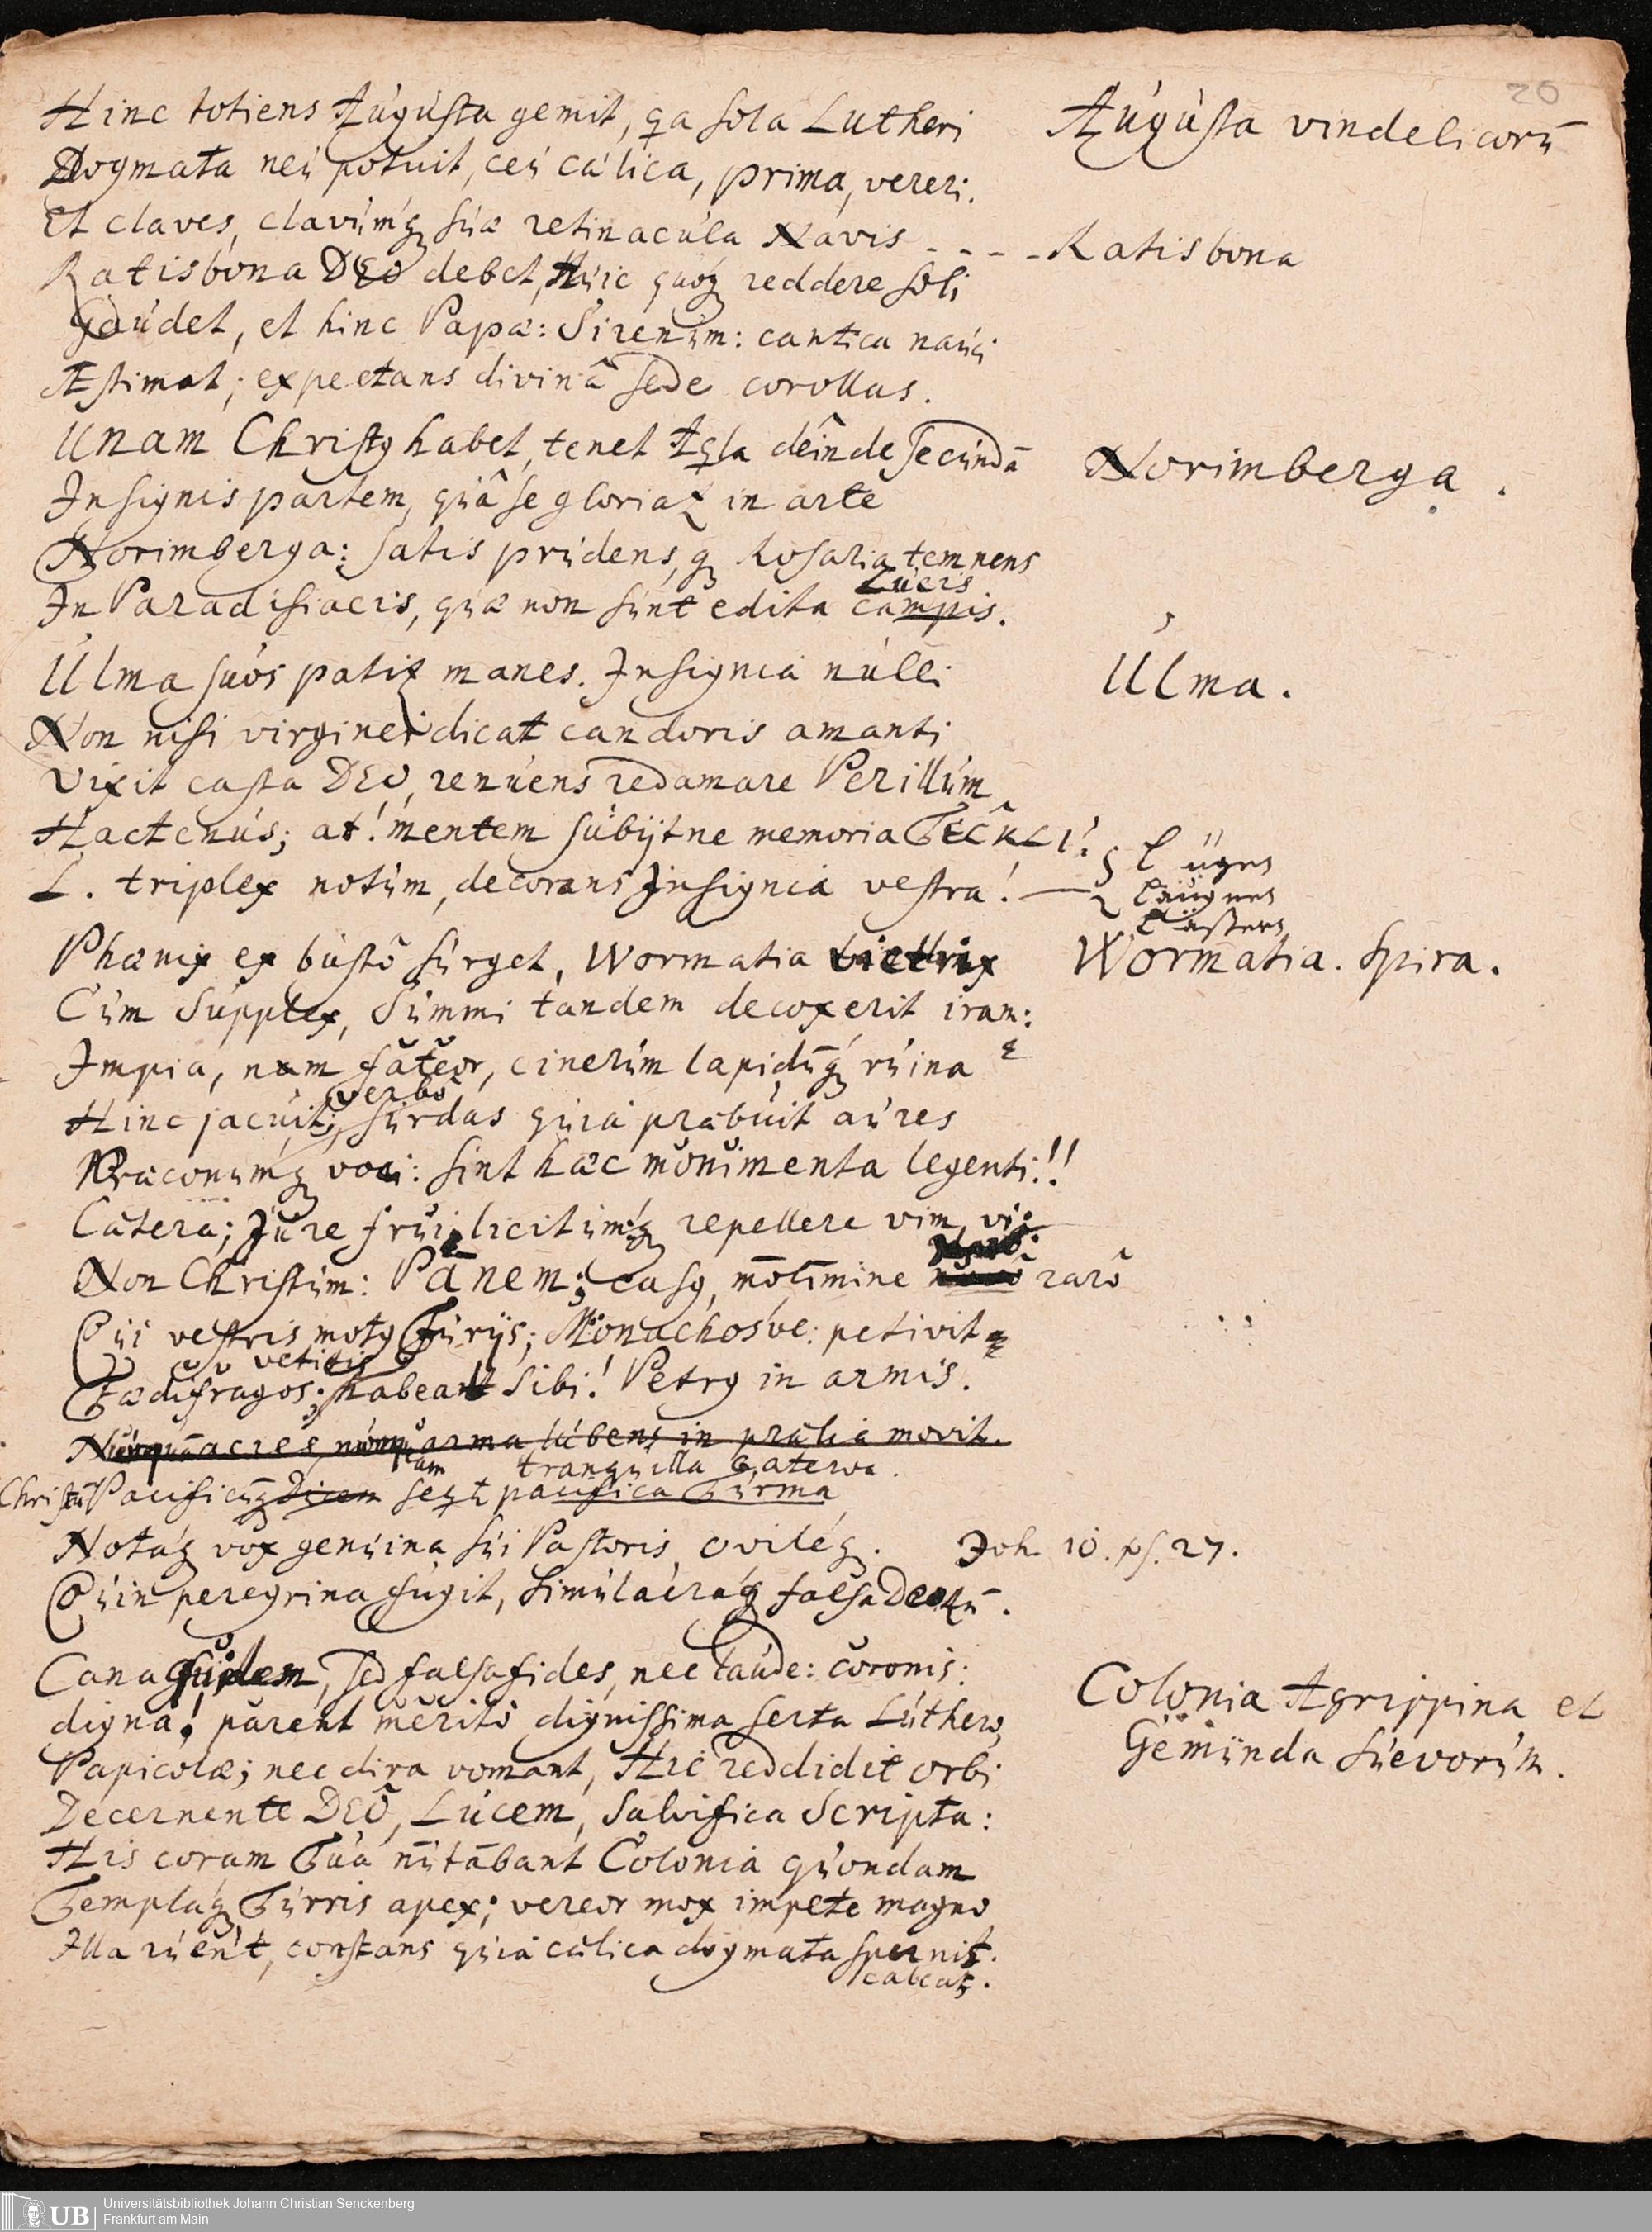 20
Hinc totiens Augusta gemit, qa sola Lutheri
Augusta vindelicorū
Dogmata neu potuit, ceu cælica, prima, vereri.
Et claves, clavumq; suæ retinacula Navis - - - -
Ratisbona
Ratisbona DEO debet, Huic quoq; reddere soli
Gaudet, et hinc Papæ: Sirenum: cantica nauci
Æstimat; expectans divinâ sede corollas.
Unam Christq habet, tenet Aqla deinde secundā
Norimberga.
Insignis partem, quâ se gloriaʈ in arte
Norimberga: satis prudens, q; Rosaria temnens
Lucis
In Paradisiacis, quæ non sunt edita campis.
Ulma suos patiʈ manes. Insignia nulli
Ulma.
Non nisi virginei dicat candoris amanti
Vixit casta DEO, renuens redamare Perillum
Hactenus; at! mentem subijtne memoria TECKLI?
Lügen
L. triplex notum, decorans Insignia vestra! —
Läugnen
Lästern
Phænix ex bustô surget, Wormatia victrix
Wormatia. Spira.
Cum Supplex, Summi tandem decoxerit iram:
Impia, nam fateor, cinerum lapidūq; ruina
verbo
Hinc jacuit; surdas quia præbuit aures
Præconumq; voci: sint hæc monimenta legenti!!
Cætera; Jure frui, licitumq; repellere vim, vi:
Non Christum: Pānem; casq, mōlimine rarô
Qui vestris motq Furijs; Monachosve: petivit
vetitis
Fædifragos; habeant sibi! Petrq in armis.
Nunquā acres, arma lubens in prælia movit.
quam tranquilla Caterva.
Christū Pacificūq; Ducem seqt pacifica Turma
Notaq; vox genuina sui Pastoris, ovileq;.
Joh. 10. ps. 27.
Quin peregrina fugit, simulacraq; falsa Deorū.
Cana quidem, sed falsa fides, nec laude: coronis:
Colonia Agrippina et
digna! parent meritò dignissima serta Luthero,
Gemünda Suevorum.
Papicolæ; nec dira vomant, Hic reddidit orbi
Decernente DEÔ, Lucem, Salvifica Scripta:
His coram Tua nūtābant Colonia quondam
Templaq; Turris apex; vereor mox impete magno
Illa ruent, constans quia cælica dogmata spernis.
caleat.
Universitätsbibliothek Johann Christian Senckenberg
UB
Frankfurt am Main